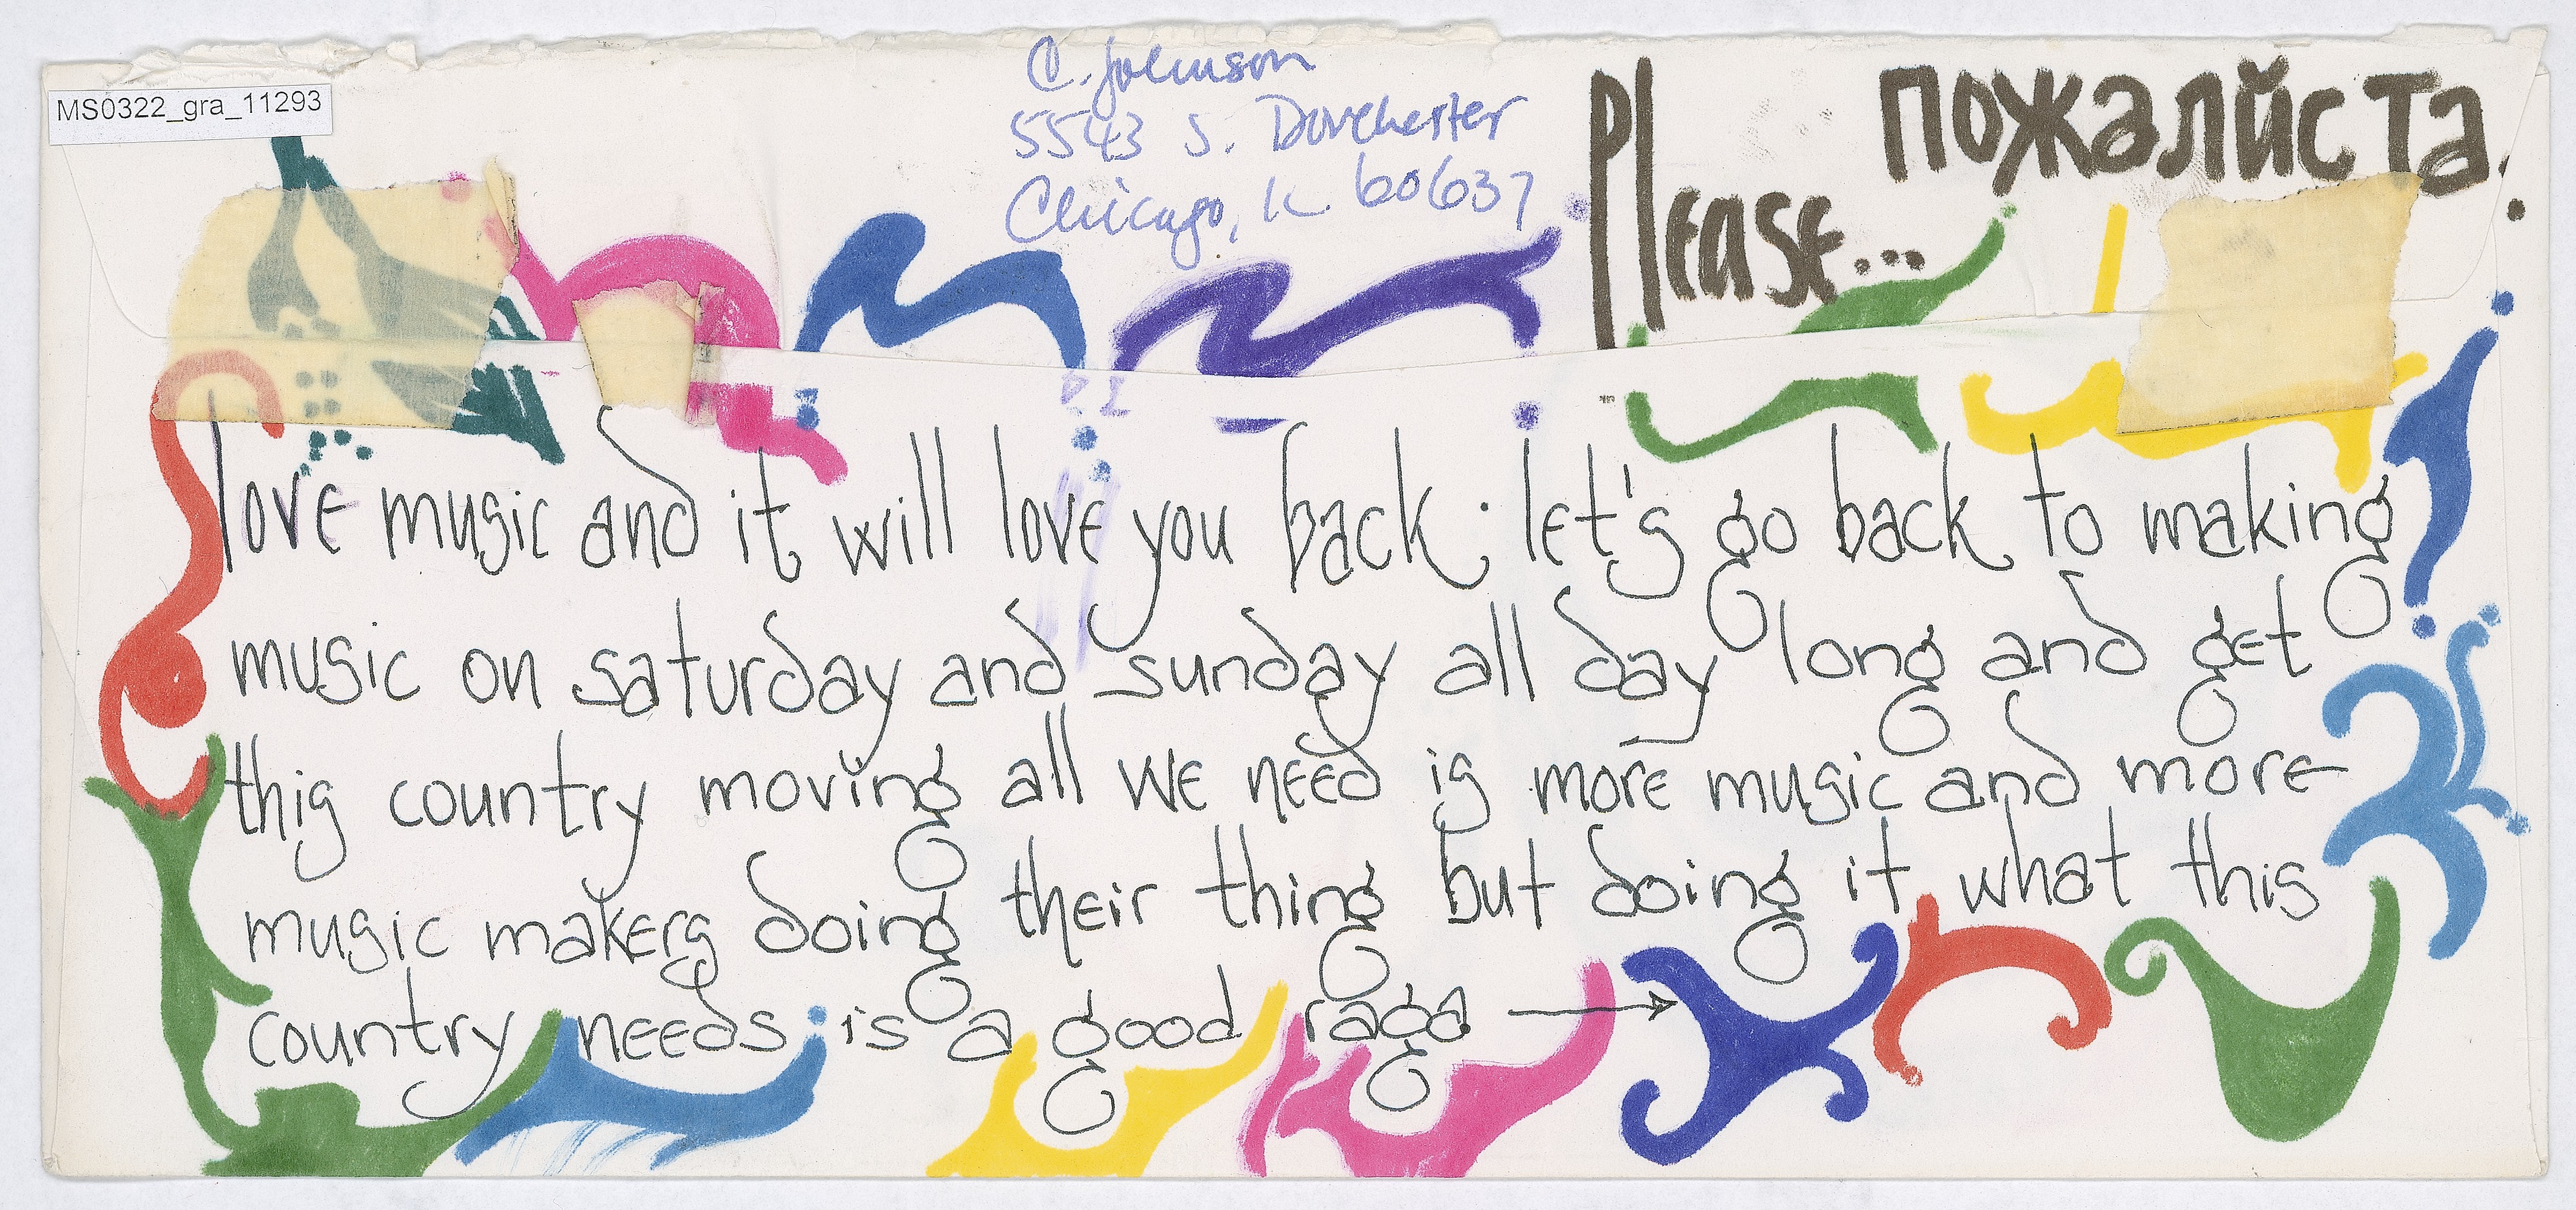 MS0322_gra_11293
C. Johnson
5543 S. Dorchester
Chicago, IL 60637
Please...
пожалйста.
love music and it will love you back; let's go back to making
music on saturday and sunday all day long and get
this country moving all we need is more music and more
music makers doing their thing but doing it what this
country needs is a good raga →